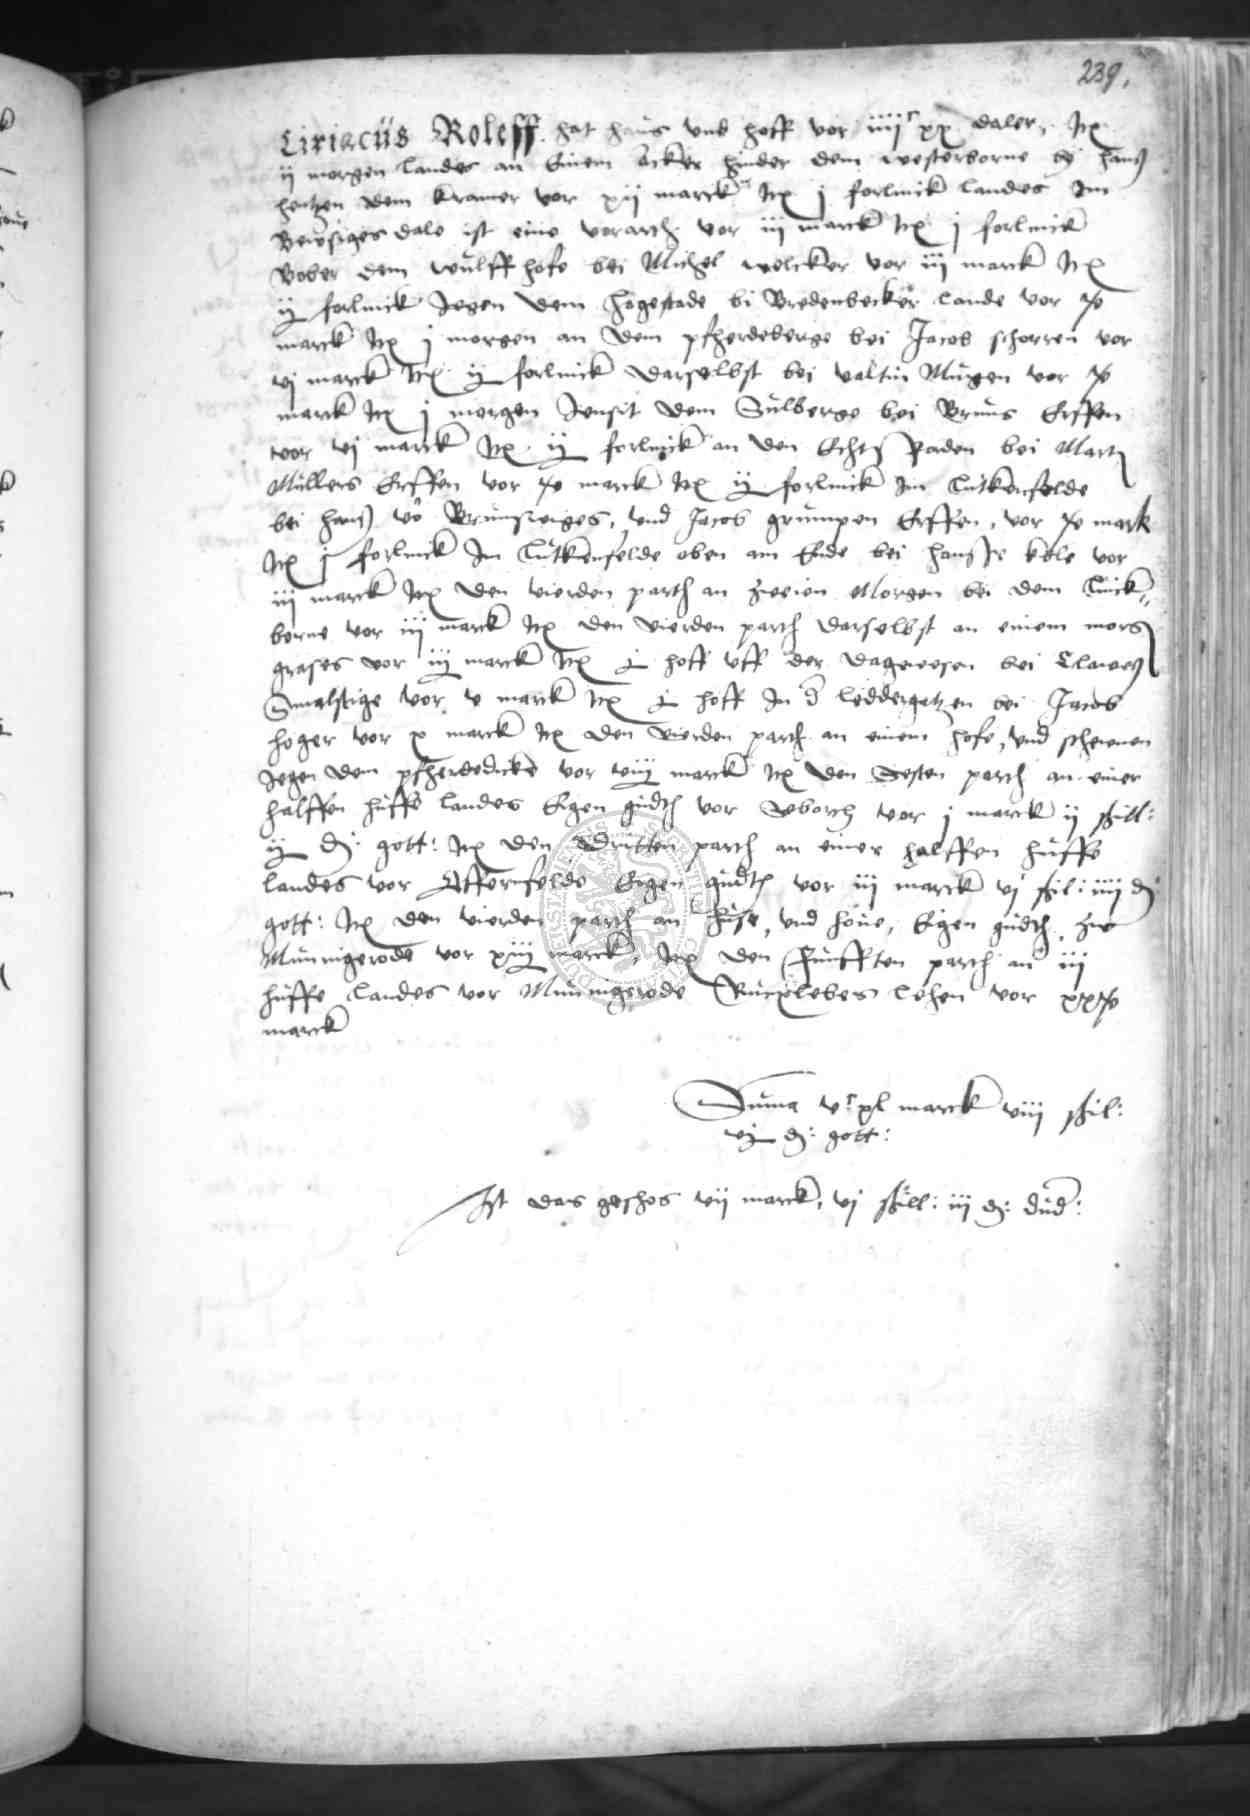 239.
Ciriacus Roleff hat haus vnd hoff vor iiijc xx daler, Itē
ij morgen landes an Einem acker hinder dem westerborne bj hanß
hentzen dem kramer vor xij marck Itē j forlinck landes Im
dale ist eine vorarch vor iij marck Itē j forlinck
Bober dem wulffhofe bei Michel welcker vor iij marck Itē
ij forlinck Jegen dem hogestade bi Bredenbecker lande vor
marck Itē j morgen an dem pfherdeberge bei Jacob schorren vor
vj marck Itē ij forlinck darselbst bei valtin Mugen vor
marck Itē j morgen Jensit dem Sulberge bei Bruns Erffen
vor vj marck Itē ij forlinck an den Paden bei Martē
Mullers Erffen vor marck Itē ij forlinck Im Lutkenfelde
bei hanß vō Brunswiges, vnd Jacob grumpen Erffen, vor mark
Itē j forlinck Im Lutkenfelde oben am Ende bei kole vor
iij marck Itē den vierden parth an zweien Morgen bei dem
borne vor iij marck Itē den vierden parth darselbst an einem
grases vor iij marck Itē hoff vff der dagewesen bei Claweß
Smalstige vor v marck Itē hoff In d leddergatzen bei Jacob
hoger vor x marck Itē den vierden parth an einem hofe, vnd schewnen
Jegen dem pfherdedicke vor marck Itē den Sesten parth an einer
halffen huffe landes Eigen gudth vor vor j marck ij skill:
ij d: gott: Itē den dritten parth an einer halffen huffe
landes vor Eigen gudth vor iij marck vj skil: iiij d:
gott: Itē den vierden parth an huse, vnd houe, Eigen gudth, zw
Munnigerode vor xiij marck, Itē den Funfften parth an iij
huffe landes vor Munnigerode lehen vor
marck
Suma vc xl marck viij skil:
vj d: gott:
Ist das geschos vij marck, vj skill: iij d: dud: